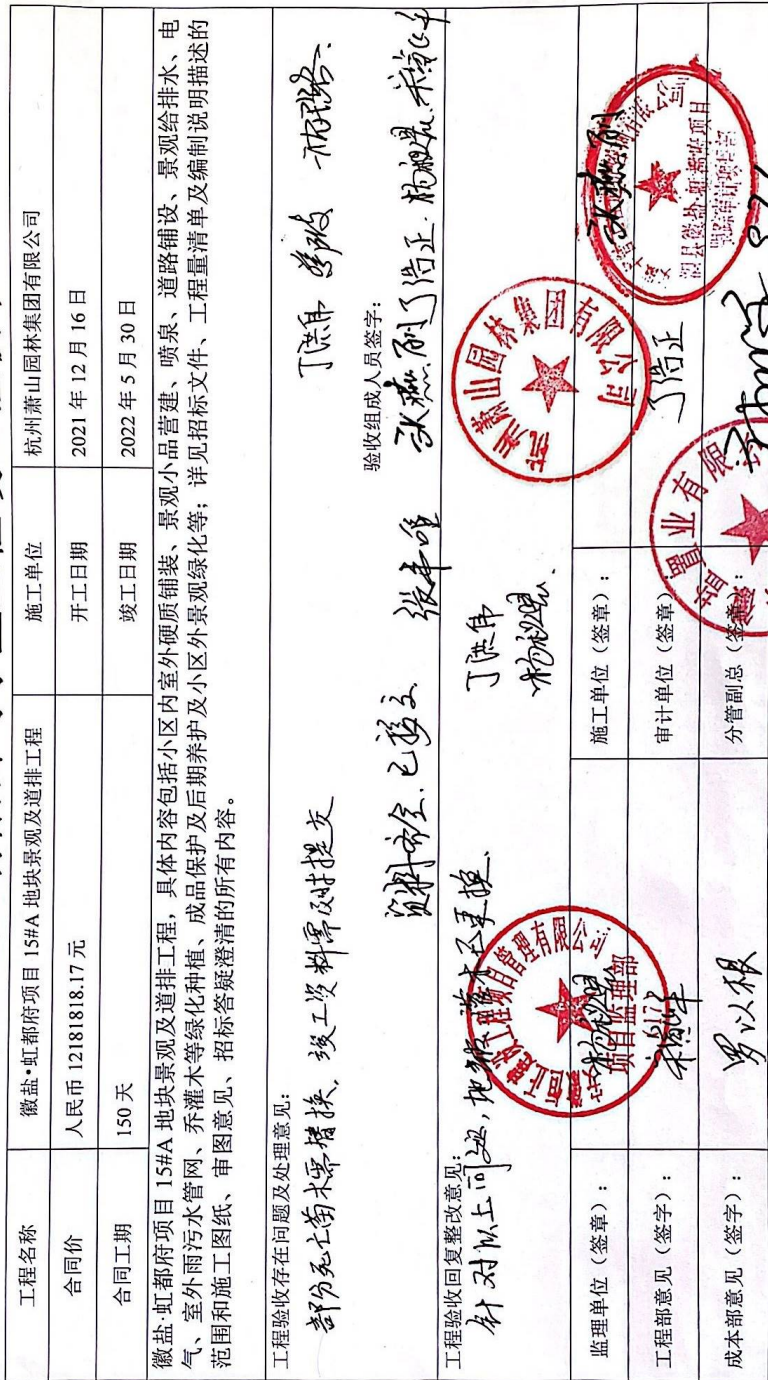 工程名称 徽盐·虹都府项目 15#A 地块景观及道排工程 施工单位 杭州萧山园林集团有限公司
合同价 人民币 12181818.17 元 开工日期 2021 年 12 月 16 日
合同工期 150 天 竣工日期 2022 年 5 月 30 日
徽盐·虹都府项目 15#A 地块景观及道排工程，具体内容包括小区内室外硬质铺装、景观小品营建、喷泉、道路铺设、景观给排水、电
气、室外雨污水管网、乔灌木等绿化种植、成品保护及后期养护及小区外景观绿化等；详见招标文件、工程量清单及编制说明描述的
范围和施工图纸、审图意见、招标答疑澄清的所有内容。
工程验收存在问题及处理意见：
部分死亡苗木需替换，竣工资料需及时提交
丁洪伟
资料齐全、已移交
验收组成人员签字：
丁浩正
工程验收回复整改意见：
针对以上问题，地被、苗木已更换。
丁洪伟
监理单位（签章）： 施工单位（签章）：
项目监理部
杭州萧山园林集团有限公司
工程部意见（签字）： 审计单位（签章）
丁浩正
成本部意见（签字）： 罗以根 分管副总（签字）：
置业有限